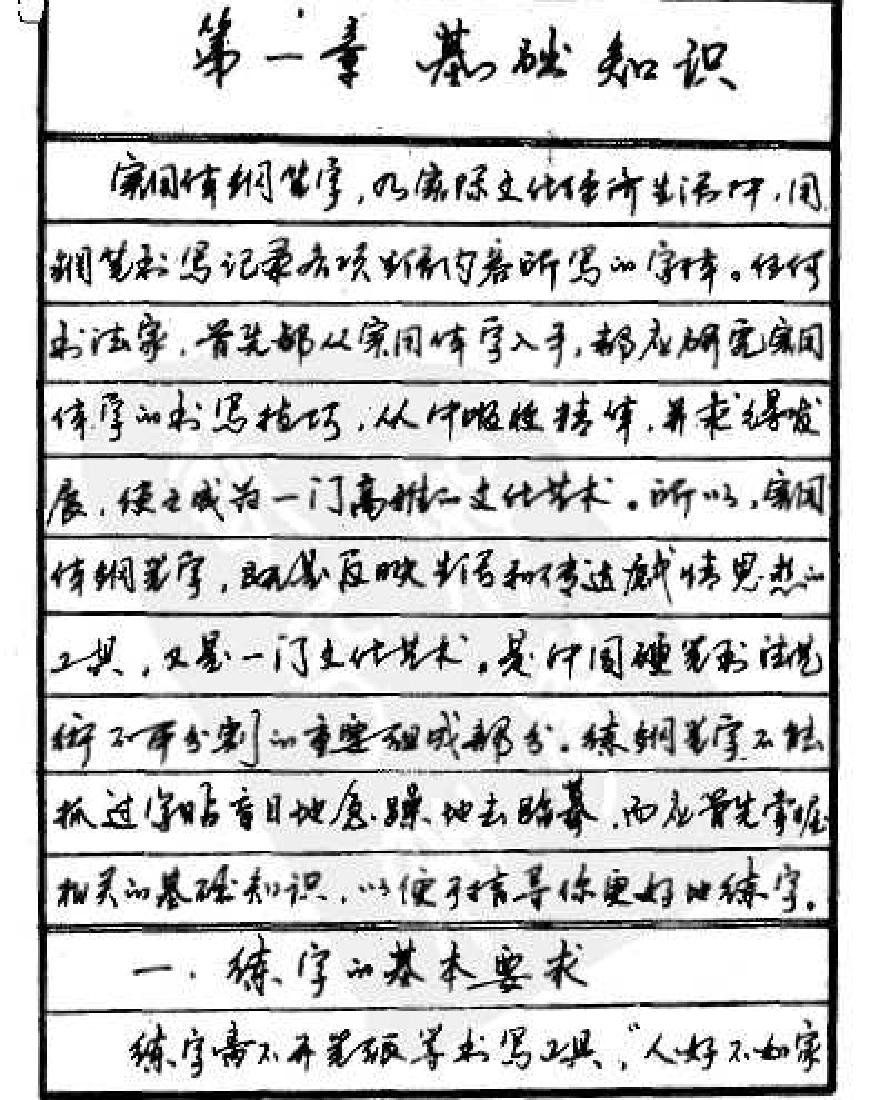 第一章 基础知识
实用体钢笔字，乃实际文化经济生活中，用
钢笔书写记录各项生活内容所写的字体。任何
书法家，首先都从实用体字入手，都应研究实用
体字的书写技巧，从中吸收精华，并求得发
展，使之成为一门高雅的文化艺术。所以，实用
体钢笔字，既是反映生活和传达感情思想的
工具，又是一门文化艺术。是中国硬笔书法艺
术不可分割的重要组成部分。练钢笔字不能
抓过字帖盲目地急躁地去临摹，而应首先掌握
相关的基础知识，以便于指导你更好地练字。
一．练字的基本要求
练字离不开笔纸等书写工具，"人好不如家